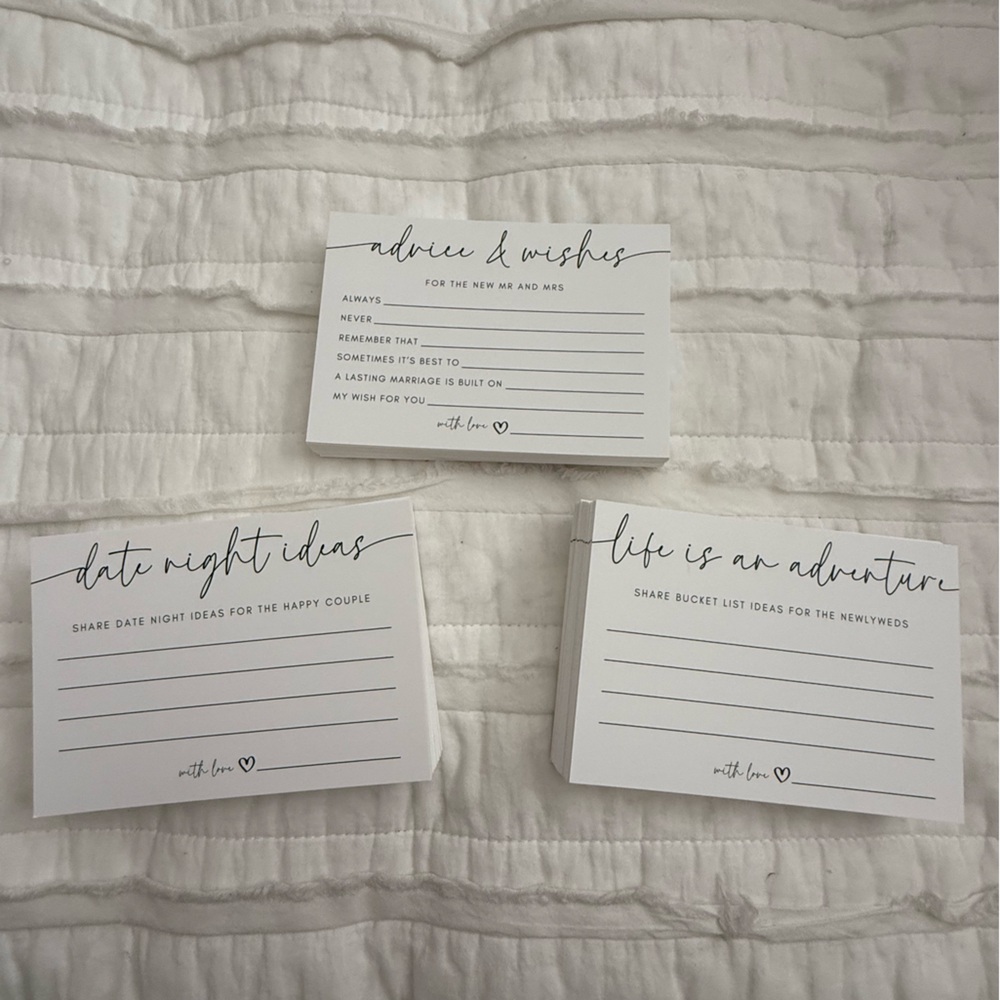 advice & wishes
FOR THE NEW MR AND MRS
ALWAYS
NEVER
REMEMBER THAT
SOMETIMES IT'S BEST TO
A LASTING MARRIAGE IS BUILT ON
MY WISH FOR YOU
with love
date night ideas
SHARE DATE NIGHT IDEAS FOR THE HAPPY COUPLE
with love
life is an adventure
SHARE BUCKET LIST IDEAS FOR THE NEWLYWEDS
with love